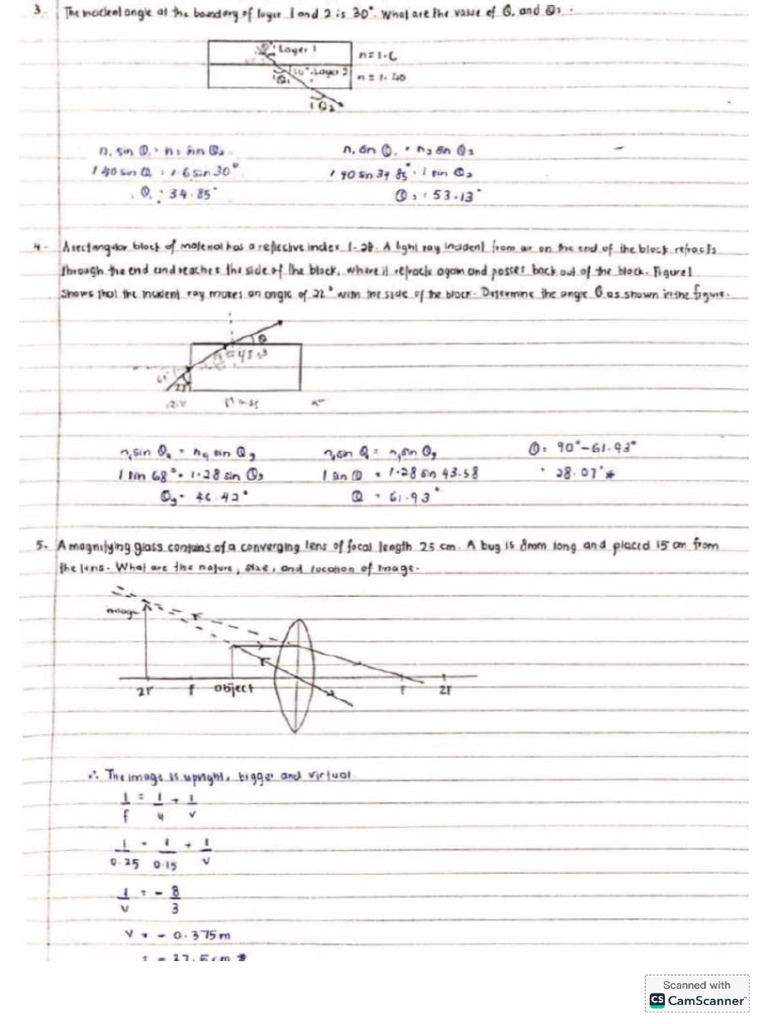 3. The incident angle at the boundary of layer 1 and 2 is 30°. What are the value of θ₁ and θ₂.
Layer 1
n = 1.6
30° Layer 2
n = 1.40
θ₁
θ₂
n₁ sin θ₁ = n₂ sin θ₂
n₁ sin θ₁ = n₂ sin θ₂
1.40 sin θ₁ = 1.6 sin 30°
1.40 sin 34.85° = 1 sin θ₂
θ₁ = 34.85°
θ₂ = 53.13°
4. A rectangular block of material has a reflective index 1.28. A light ray incident from air on the end of the block refracts
through the end and reaches the side of the block, where it refracts again and passes back out of the block. Figure 1
shows that the incident ray makes an angle of 22° with the side of the block. Determine the angle θ as shown in the figure.
θ
43.58
22°
n₁ sin θₐ = n₉ sin θ₉
n₁ sin θ = n₁ sin θ₉
θ = 90° - 61.93°
1 sin 68° = 1.28 sin θ₉
1 sin θ = 1.28 sin 43.58
= 28.07°
θ₉ = 46.42°
θ = 61.93°
5. A magnifying glass contains of a converging lens of focal length 25 cm. A bug is 8mm long and placed 15 cm from
the lens. What are the nature, size, and location of image.
image
2F F object F 2F
∴ The image is upright, bigger and virtual
1/f = 1/u + 1/v
1/0.25 = 1/0.15 + 1/v
1/v = - 8/3
v = - 0.375 m
= - 37.5 cm
Scanned with
CS CamScanner